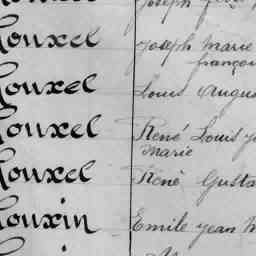 Joseph
ouxel Joseph Marie
françois
ouxel Louis Augus
ouxel René Louis
Marie
ouxel René Gusta
ouxin Emile jean M